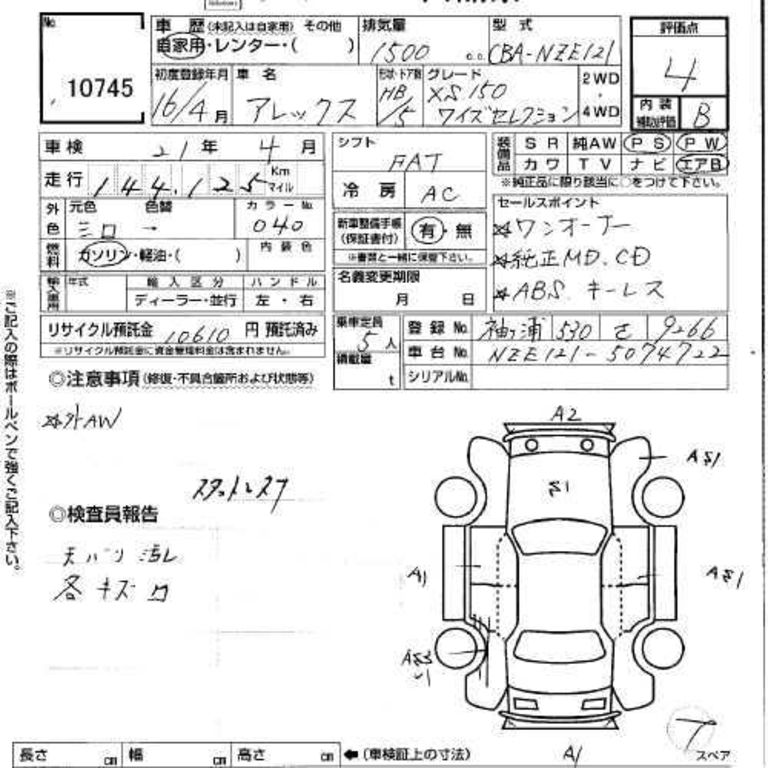 No.
10745
車歴 (未記入は自家用) その他
自家用・レンター・( )
排気量
1500 c.c.
型式
CBA-NZE121
評価点
4
内装
補助評価 B
初度登録年月
16/4月
車名
アレックス
形状・ドア数
HB/5
グレード
XS150
ワイズセレクション
2WD
4WD
車検 21年 4月
走行 144,125 Km
マイル
シフト
FAT
冷房 AC
装備品
SR 純AW PS PW
カワ TV ナビ エアB
※純正品に限り該当に○をつけて下さい。
外色
元色 色替 カラーNo.
シロ → 040
燃料
ガソリン・軽油・( )
内装色
新車整備手帳
(保証書付)
有・無
※書類と一緒に保管下さい。
セールスポイント
☆ワンオーナー
☆純正MD、CD
☆ABS キーレス
輸入車用
年式 輸入区分 ハンドル
ディーラー・並行 左・右
名義変更期限
月 日
リサイクル預託金 10610 円 預託済み
※リサイクル預託金に資金管理料金は含まれません。
乗車定員
5人
積載量
t
登録No. 袖ヶ浦 530 さ 9266
車台No. NZE121-5074722
シリアルNo.
◎注意事項(修復・不具合箇所および状態等)
☆外AW
スタットレスタ
◎検査員報告
天バリ汚レ
各キズ凹
A2
AS1
S1
A1
AS1
AS3
A1
T
スペア
長さ cm 幅 cm 高さ cm ←(車検証上の寸法)
※ご記入の際はボールペンで強くご記入下さい。